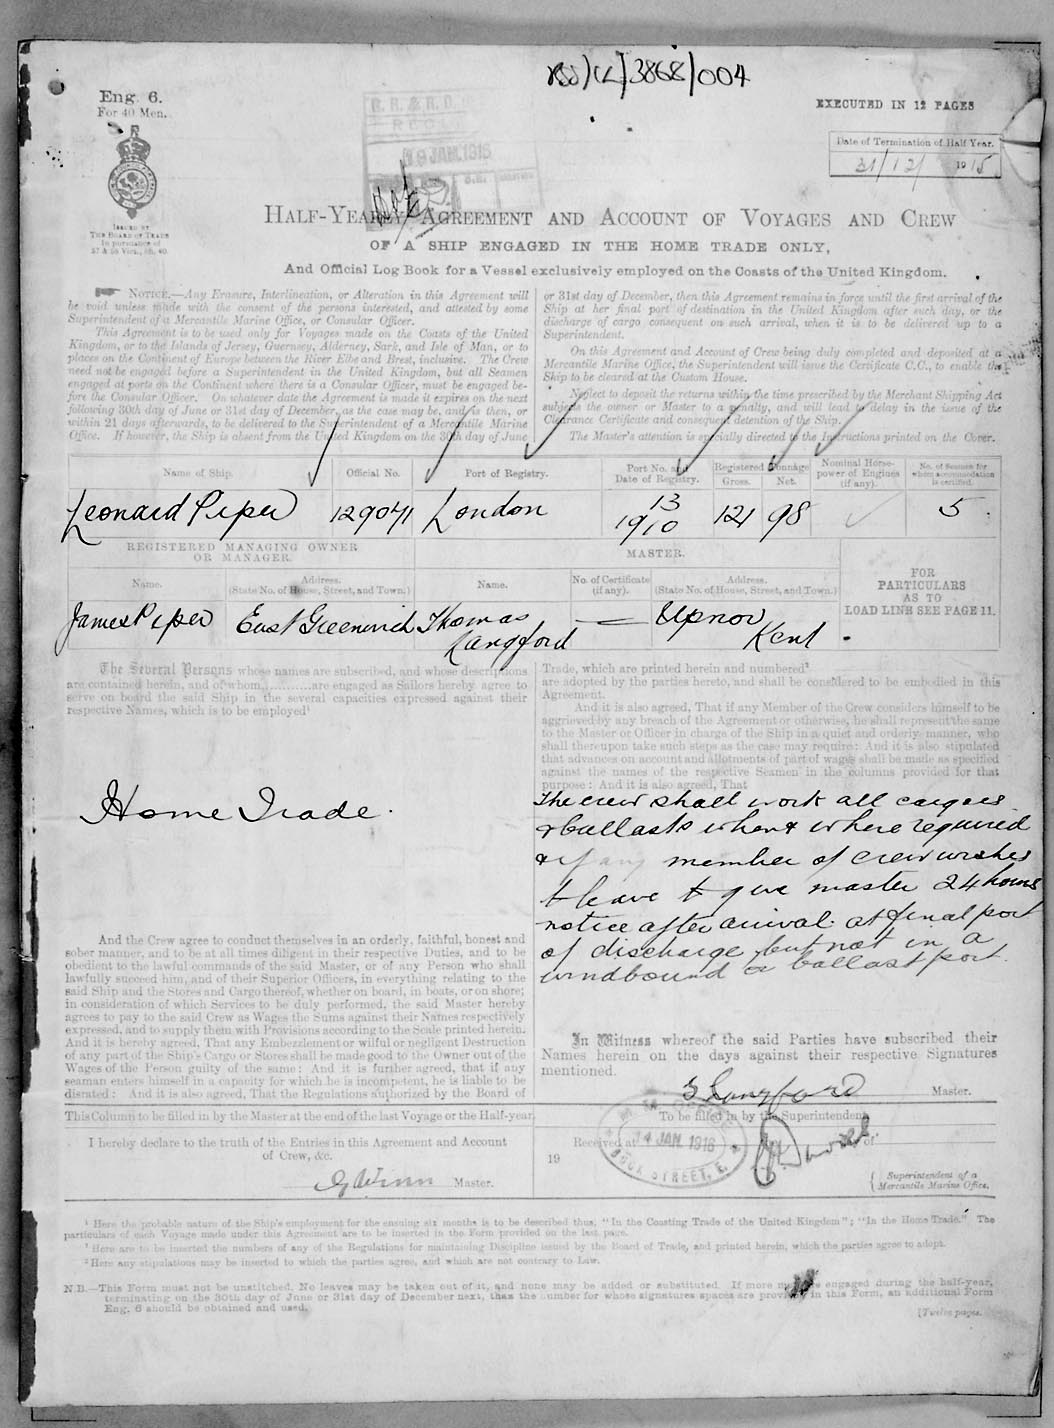 RSS/CL/3868/004
Eng. 6.
For 40 Men.
EXECUTED IN 12 PAGES
Date of Termination of Half Year.
31/12/1915
ISSUED BY
THE BOARD OF TRADE
In pursuance of
57 & 58 Vict., ch. 60.
JAN. 1916
HALF-YEARLY AGREEMENT AND ACCOUNT OF VOYAGES AND CREW
OF A SHIP ENGAGED IN THE HOME TRADE ONLY,
And Official Log Book for a Vessel exclusively employed on the Coasts of the United Kingdom.
NOTICE.—Any Erasure, Interlineation, or Alteration in this Agreement will
be void unless made with the consent of the persons interested, and attested by some
Superintendent of a Mercantile Marine Office, or Consular Officer.
This Agreement is to be used only for Voyages made on the Coasts of the United
Kingdom, or to the Islands of Jersey, Guernsey, Alderney, Sark, and Isle of Man, or to
places on the Continent of Europe between the River Elbe and Brest, inclusive. The Crew
need not be engaged before a Superintendent in the United Kingdom, but all Seamen
engaged at ports on the Continent where there is a Consular Officer, must be engaged be-
fore the Consular Officer. On whatever date the Agreement is made it expires on the next
following 30th day of June or 31st day of December, as the case may be, and is then, or
within 21 days afterwards, to be delivered to the Superintendent of a Mercantile Marine
Office. If however, the Ship is absent from the United Kingdom on the 30th day of June
or 31st day of December, then this Agreement remains in force until the first arrival of the
Ship at her final port of destination in the United Kingdom after such day, or the
discharge of cargo consequent on such arrival, when it is to be delivered up to a
Superintendent.
On this Agreement and Account of Crew being duly completed and deposited at a
Mercantile Marine Office, the Superintendent will issue the Certificate C.C., to enable the
Ship to be cleared at the Custom House.
Neglect to deposit the returns within the time prescribed by the Merchant Shipping Act
subjects the owner or Master to a penalty, and will lead to delay in the issue of the
Clearance Certificate and consequent detention of the Ship.
The Master's attention is specially directed to the Instructions printed on the Cover.
Name of Ship. Official No. Port of Registry. Port No. and Date of Registry. Registered Tonnage Gross. Net. Nominal Horse-power of Engines (if any). No. of Seamen for whom accommodation is certified.
Leonard Piper 129041 London 13 1910 121 98 5.
REGISTERED MANAGING OWNER
OR MANAGER.
MASTER.
FOR
PARTICULARS
AS TO
LOAD LINE SEE PAGE 11.
Name. Address. (State No. of House, Street, and Town.) Name. No. of Certificate (if any). Address. (State No. of House, Street, and Town.)
James Piper East Greenwich Thomas Langford — Upnor Kent.
The Several Persons whose names are subscribed, and whose descriptions
are contained herein, and of whom............are engaged as Sailors hereby agree to
serve on board the said Ship in the several capacities expressed against their
respective Names, which is to be employed¹
Home Trade.
And the Crew agree to conduct themselves in an orderly, faithful, honest and
sober manner, and to be at all times diligent in their respective Duties, and to be
obedient to the lawful commands of the said Master, or of any Person who shall
lawfully succeed him, and of their Superior Officers, in everything relating to the
said Ship and the Stores and Cargo thereof, whether on board, in boats, or on shore;
in consideration of which Services to be duly performed, the said Master hereby
agrees to pay to the said Crew as Wages the Sums against their Names respectively
expressed, and to supply them with Provisions according to the Scale printed herein.
And it is hereby agreed, That any Embezzlement or wilful or negligent Destruction
of any part of the Ship's Cargo or Stores shall be made good to the Owner out of the
Wages of the Person guilty of the same: And it is further agreed, that if any
seaman enters himself in a capacity for which he is incompetent, he is liable to be
disrated: And it is also agreed, That the Regulations authorized by the Board of
Trade, which are printed herein and numbered²
are adopted by the parties hereto, and shall be considered to be embodied in this
Agreement.
And it is also agreed, That if any Member of the Crew considers himself to be
aggrieved by any breach of the Agreement or otherwise, he shall represent the same
to the Master or Officer in charge of the Ship in a quiet and orderly manner, who
shall thereupon take such steps as the case may require: And it is also stipulated
that advances on account and allotments of part of wages shall be made as specified
against the names of the respective Seamen in the columns provided for that
purpose: And it is also agreed, That
The crew shall work all cargoes
& ballasts when & where required
& if any member of crew wishes
to leave to give master 24 hours
notice after arrival at final port
of discharge but not in a
windbound or ballast port.
In Witness whereof the said Parties have subscribed their
Names herein on the days against their respective Signatures
mentioned.
T Langford Master.
This Column to be filled in by the Master at the end of the last Voyage or the Half-year.
I hereby declare to the truth of the Entries in this Agreement and Account
of Crew, &c.
Master.
To be filled in by the Superintendent.
Received at of
14 JAN. 1916
DOCK STREET, E.
19
Superintendent of a
Mercantile Marine Office.
¹ Here the probable nature of the Ship's employment for the ensuing six months is to be described thus, "In the Coasting Trade of the United Kingdom"; "In the Home Trade." The
particulars of each Voyage made under this Agreement are to be inserted in the Form provided on the last page.
² Here are to be inserted the numbers of any of the Regulations for maintaining Discipline issued by the Board of Trade, and printed herein, which the parties agree to adopt.
³ Here any stipulations may be inserted to which the parties agree, and which are not contrary to Law.
N.B.—This Form must not be unstitched. No leaves may be taken out of it, and none may be added or substituted. If more are engaged during the half-year,
terminating on the 30th day of June or 31st day of December next, than the number for whose signatures spaces are provided in this Form, an additional Form
Eng. 6 should be obtained and used.
[Twelve pages.